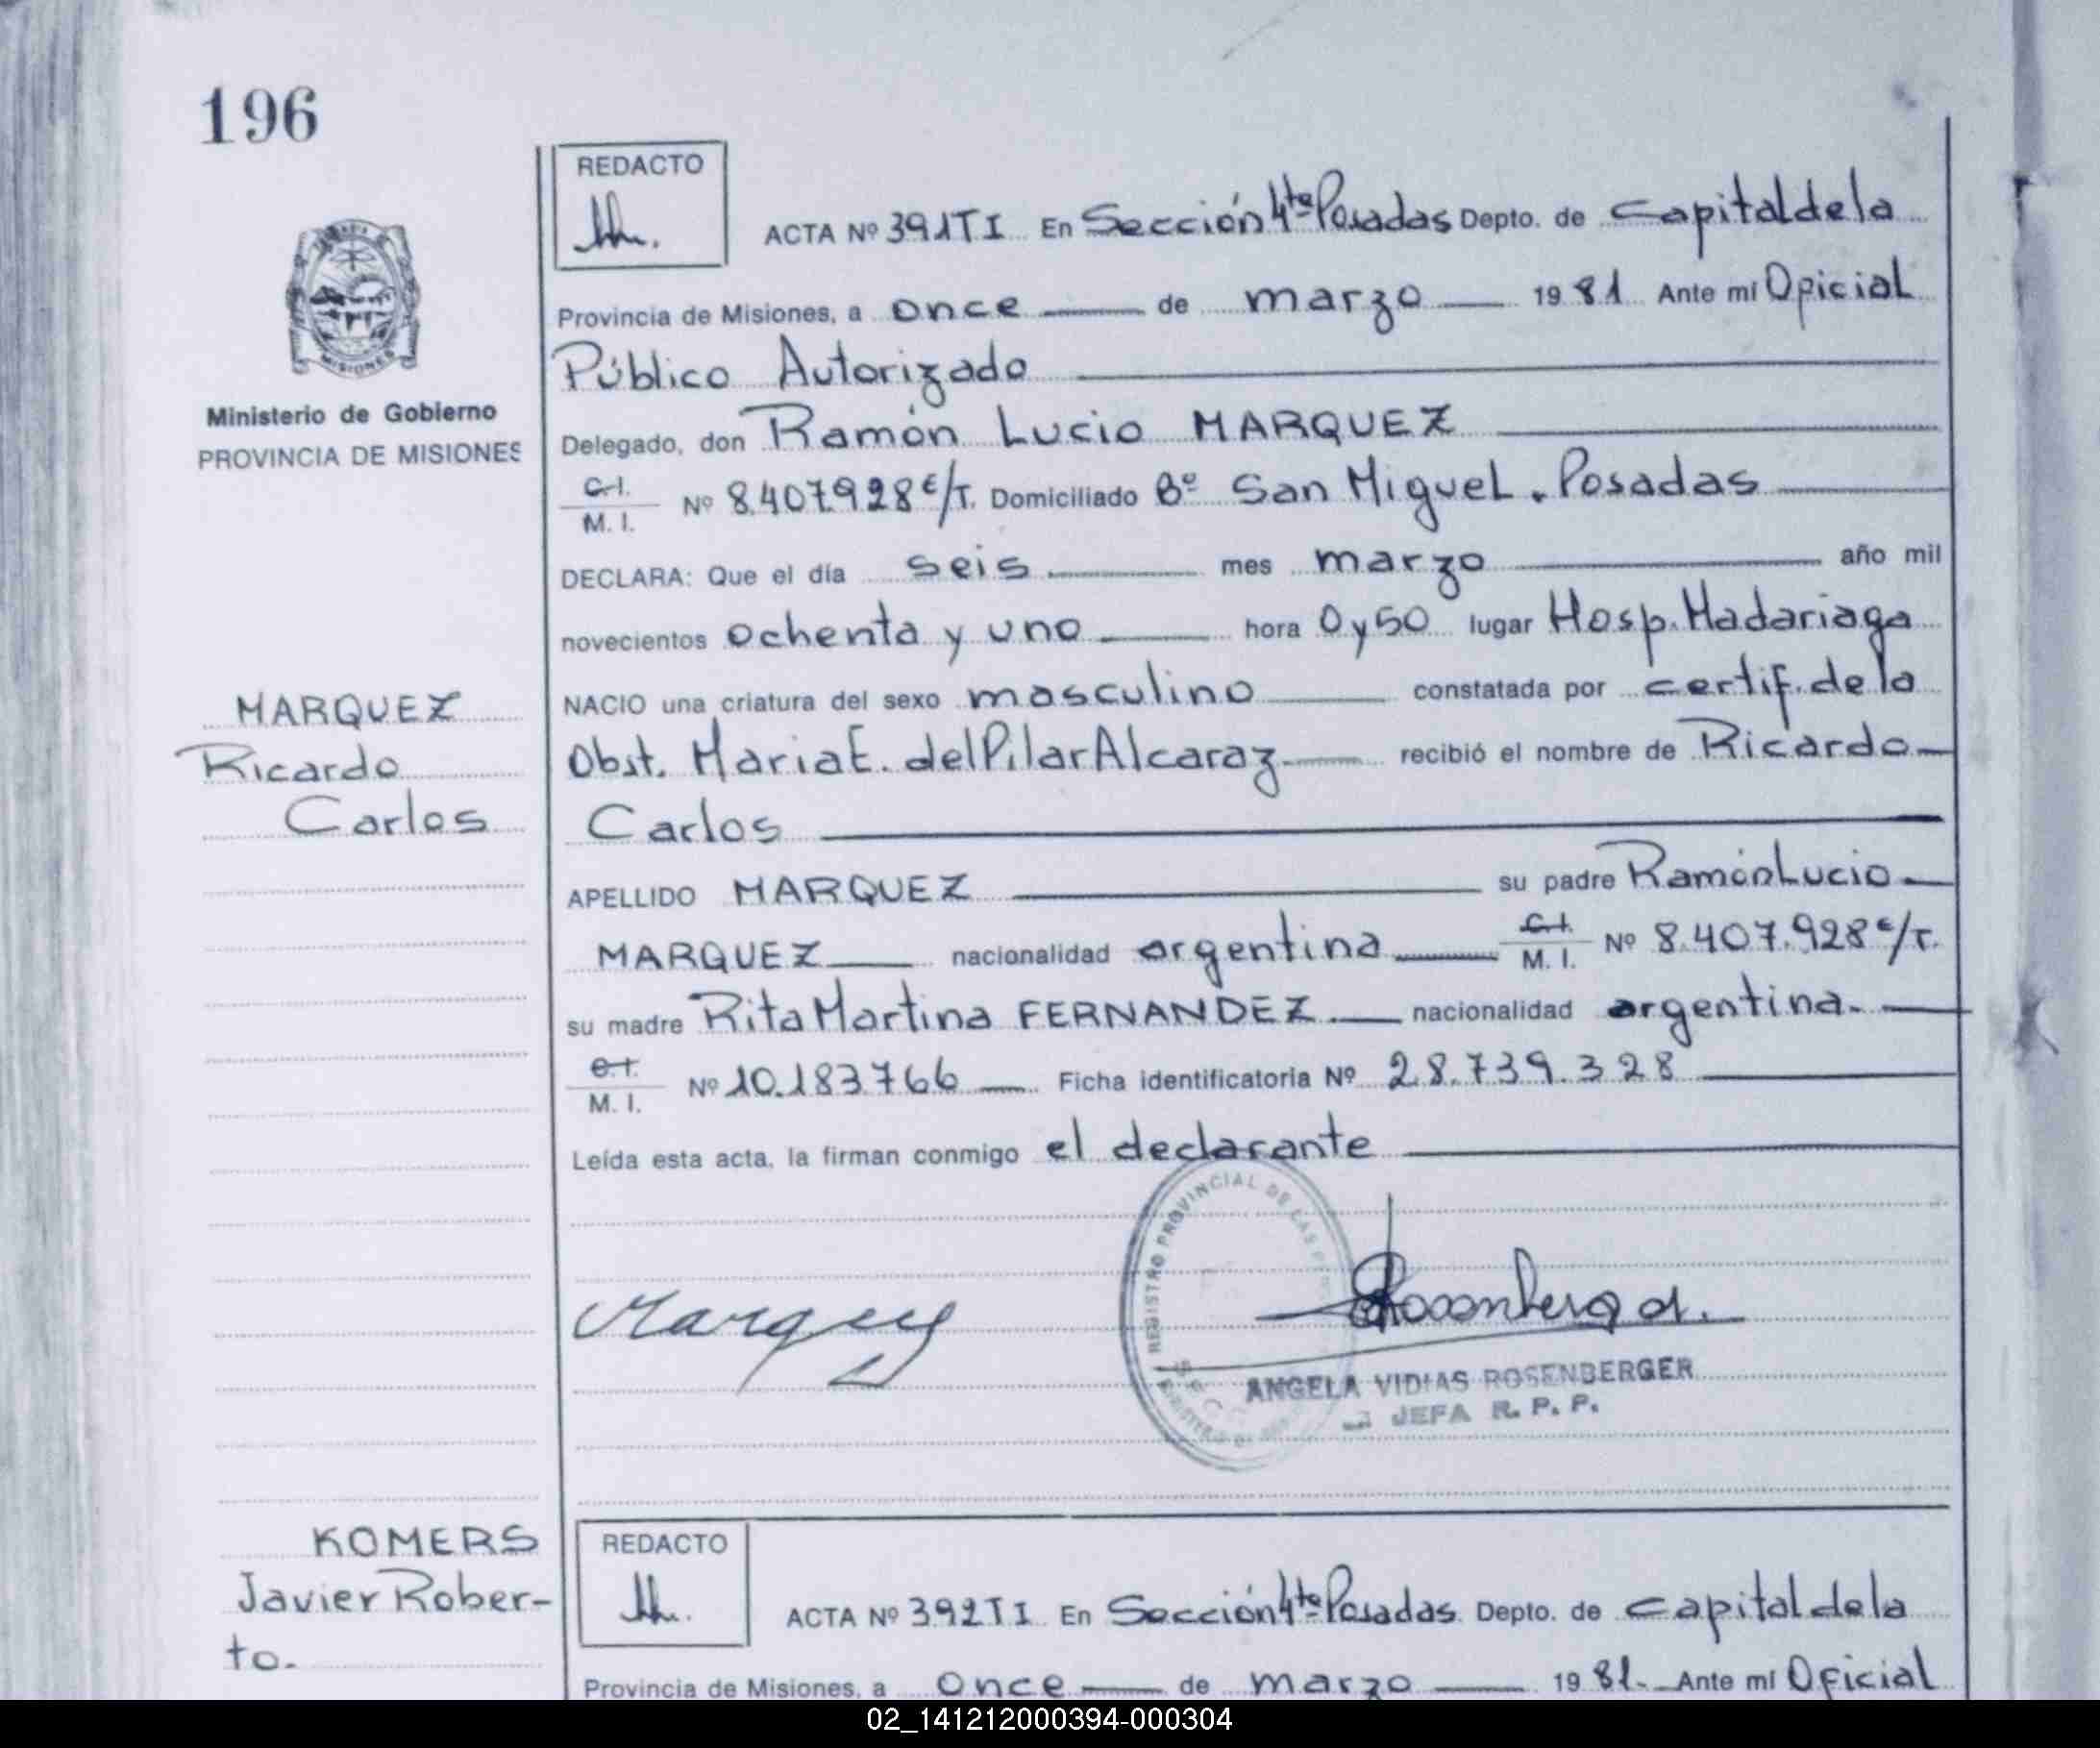 196
REDACTO
ACTA Nº 391 T I En Sección 4ta Posadas Depto. de Capital de la
Provincia de Misiones, a once de marzo 1981 Ante mí Oficial
Público Autorizado
Ministerio de Gobierno
PROVINCIA DE MISIONES
Delegado, don Ramón Lucio MARQUEZ
C.I.
M. I. Nº 8.407.928 c/T. Domiciliado Bº San Miguel. Posadas
DECLARA: Que el día seis mes marzo año mil
novecientos ochenta y uno hora 0 y 50 lugar Hosp. Madariaga
NACIO una criatura del sexo masculino constatada por certif. de la
Obst. Maria E. del Pilar Alcaraz recibió el nombre de Ricardo
Carlos
MARQUEZ
Ricardo
Carlos
APELLIDO MARQUEZ su padre Ramón Lucio
MARQUEZ nacionalidad argentina C.I.
M. I. Nº 8.407.928 c/T.
su madre Rita Martina FERNANDEZ. nacionalidad argentina.
C.I.
M. I. Nº 10.183.766 Ficha identificatoria Nº 28.739.328
Leída esta acta, la firman conmigo el declarante
REGISTRO PROVINCIAL DE LAS
Marquez
ANGELA VIDIAS ROSENBERGER
JEFA R. P. P.
KOMERS
Javier Rober-
to.
REDACTO
ACTA Nº 392 T I En Sección 4ta Posadas Depto. de Capital de la
Provincia de Misiones, a once de marzo 1981. Ante mí Oficial
02_141212000394-000304